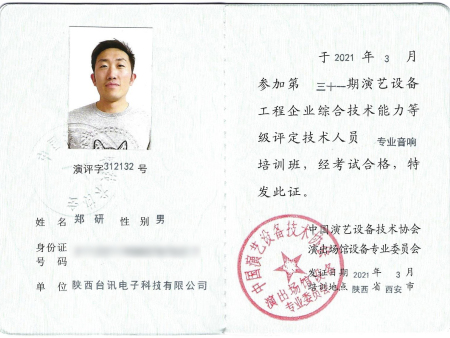 演评字312132 号
姓 名 郑 研 性 别 男
身份证
号 码
单 位 陕西台讯电子科技有限公司
于 2021 年 3 月
参加第 三十一期演艺设备
工程企业综合技术能力等
级评定技术人员 专业音响
培训班，经考试合格，特
发此证。
中国演艺设备技术协会
演出场馆设备专业委员会
发证日期 2021 年 3 月
培训地点 陕西 省 西安 市
中国演艺设备技术协会
演出场馆设备
专业委员会